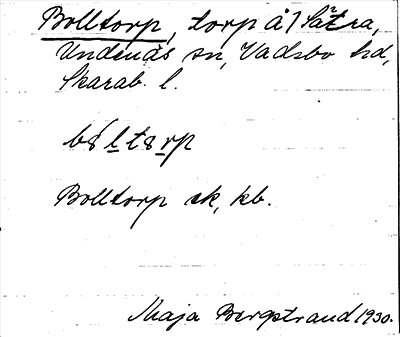 Bolltorp, torp å 1 Sätra,
Undenäs sn, Vadsbo hd,
Skarab. l.
Bolltorp ek, kb.
Maja Bergstrand 1930.